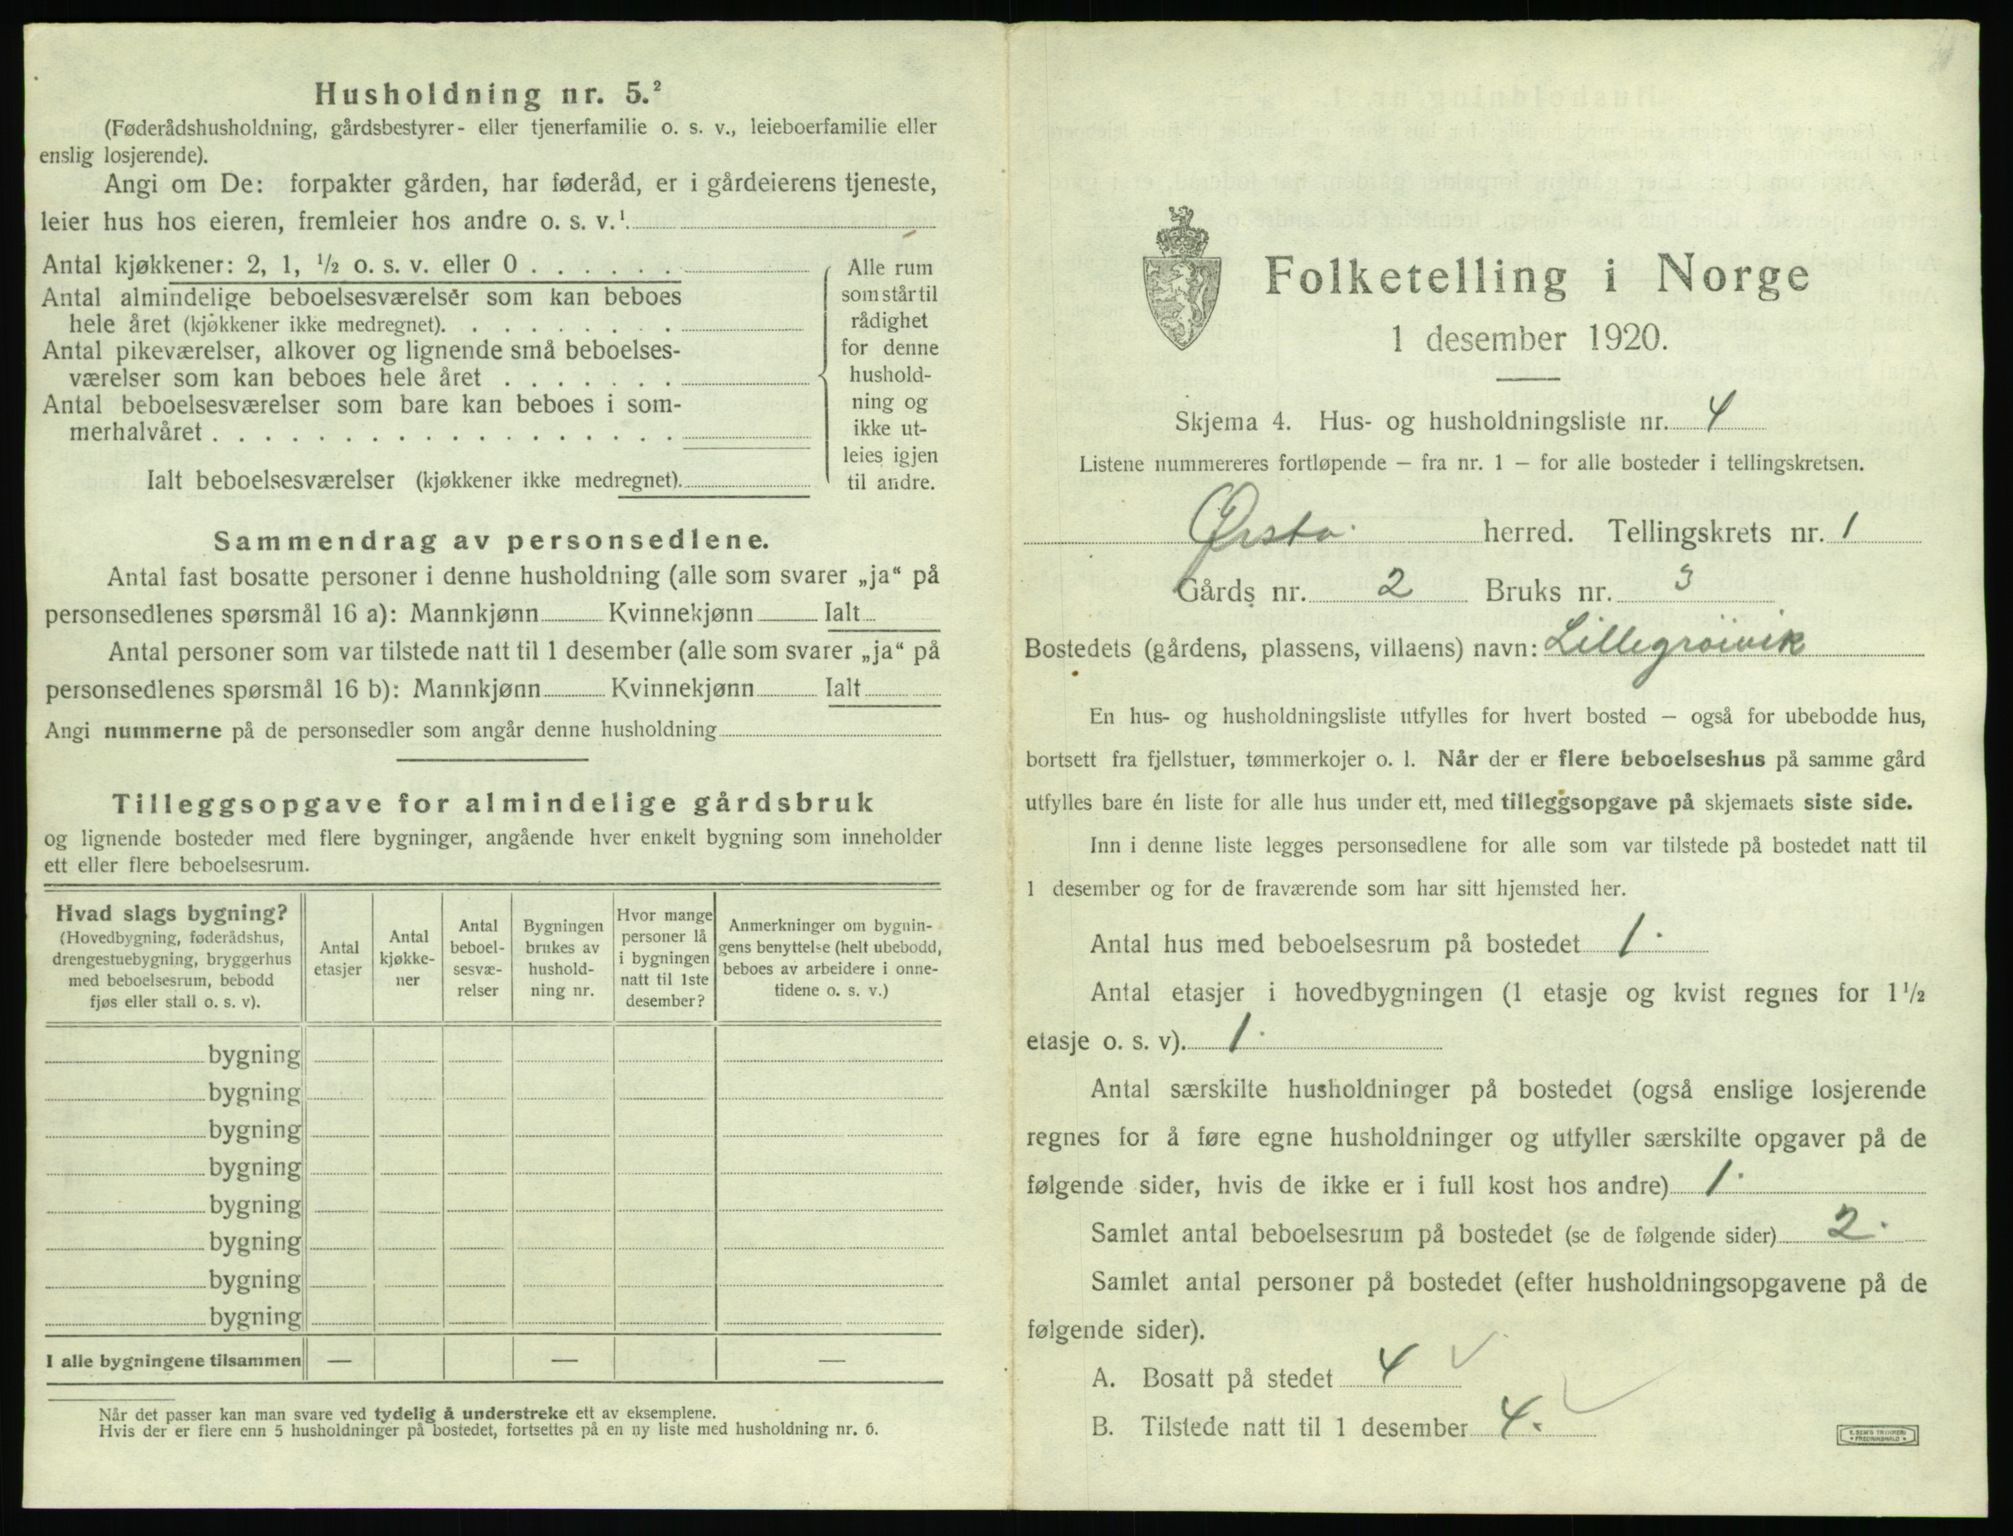 Husholdning nr. 5.²
(Føderådshusholdning, gårdsbestyrer- eller tjenerfamilie o. s. v., leieboerfamilie eller
enslig losjerende).
Angi om De: forpakter gården, har føderåd, er i gårdeierens tjeneste,
leier hus hos eieren, fremleier hos andre o. s. v.¹
Antal kjøkkener: 2, 1, ½ o. s. v. eller 0 . . . . . .
Antal almindelige beboelsesværelser som kan beboes
hele året (kjøkkener ikke medregnet). . . . . . . . .
Antal pikeværelser, alkover og lignende små beboelses-
værelser som kan beboes hele året . . . . . . .
Antal beboelsesværelser som bare kan beboes i som-
merhalvåret . . . . . . . . . . . . . . . . . .
Ialt beboelsesværelser (kjøkkener ikke medregnet).
Alle rum
som står til
rådighet
for denne
hushold-
ning og
ikke ut-
leies igjen
til andre.
Sammendrag av personsedlene.
Antal fast bosatte personer i denne husholdning (alle som svarer „ja“ på
personsedlenes spørsmål 16 a): Mannkjønn Kvinnekjønn Ialt
Antal personer som var tilstede natt til 1 desember (alle som svarer „ja“ på
personsedlenes spørsmål 16 b): Mannkjønn Kvinnekjønn Ialt
Angi nummerne på de personsedler som angår denne husholdning
Tilleggsopgave for almindelige gårdsbruk
og lignende bosteder med flere bygninger, angående hver enkelt bygning som inneholder
ett eller flere beboelsesrum.
Hvad slags bygning?
(Hovedbygning, føderådshus,
drengestuebygning, bryggerhus
med beboelsesrum, bebodd
fjøs eller stall o. s. v).
Antal
etasjer
Antal
kjøkke-
ner
Antal
beboel-
sesvæ-
relser
Bygningen
brukes av
hushold-
ning nr.
Hvor mange
personer lå
i bygningen
natt til 1ste
desember?
Anmerkninger om bygnin-
gens benyttelse (helt ubebodd,
beboes av arbeidere i onne-
tidene o. s. v.)
bygning
bygning
bygning
bygning
bygning
bygning
bygning
bygning
I alle bygningene tilsammen — — —
Når det passer kan man svare ved tydelig å understreke ett av eksemplene.
Hvis der er flere enn 5 husholdninger på bostedet, fortsettes på en ny liste med husholdning nr. 6.
Folketelling i Norge
1 desember 1920.
Skjema 4. Hus- og husholdningsliste nr. 4
Listene nummereres fortløpende – fra nr. 1 – for alle bosteder i tellingskretsen.
Ørsta herred. Tellingskrets nr. 1
Gårds nr. 2 Bruks nr. 3
Bostedets (gårdens, plassens, villaens) navn: Lillegrøivik
En hus- og husholdningsliste utfylles for hvert bosted – også for ubebodde hus,
bortsett fra fjellstuer, tømmerkojer o. l. Når der er flere beboelseshus på samme gård
utfylles bare én liste for alle hus under ett, med tilleggsopgave på skjemaets siste side.
Inn i denne liste legges personsedlene for alle som var tilstede på bostedet natt til
1 desember og for de fraværende som har sitt hjemsted her.
Antal hus med beboelsesrum på bostedet 1.
Antal etasjer i hovedbygningen (1 etasje og kvist regnes for 1½
etasje o. s. v). 1.
Antal særskilte husholdninger på bostedet (også enslige losjerende
regnes for å føre egne husholdninger og utfyller særskilte opgaver på de
følgende sider, hvis de ikke er i full kost hos andre) 1.
Samlet antal beboelsesrum på bostedet (se de følgende sider) 2.
Samlet antal personer på bostedet (efter husholdningsopgavene på de
følgende sider).
A. Bosatt på stedet 4 ✓
B. Tilstede natt til 1 desember 4. ✓